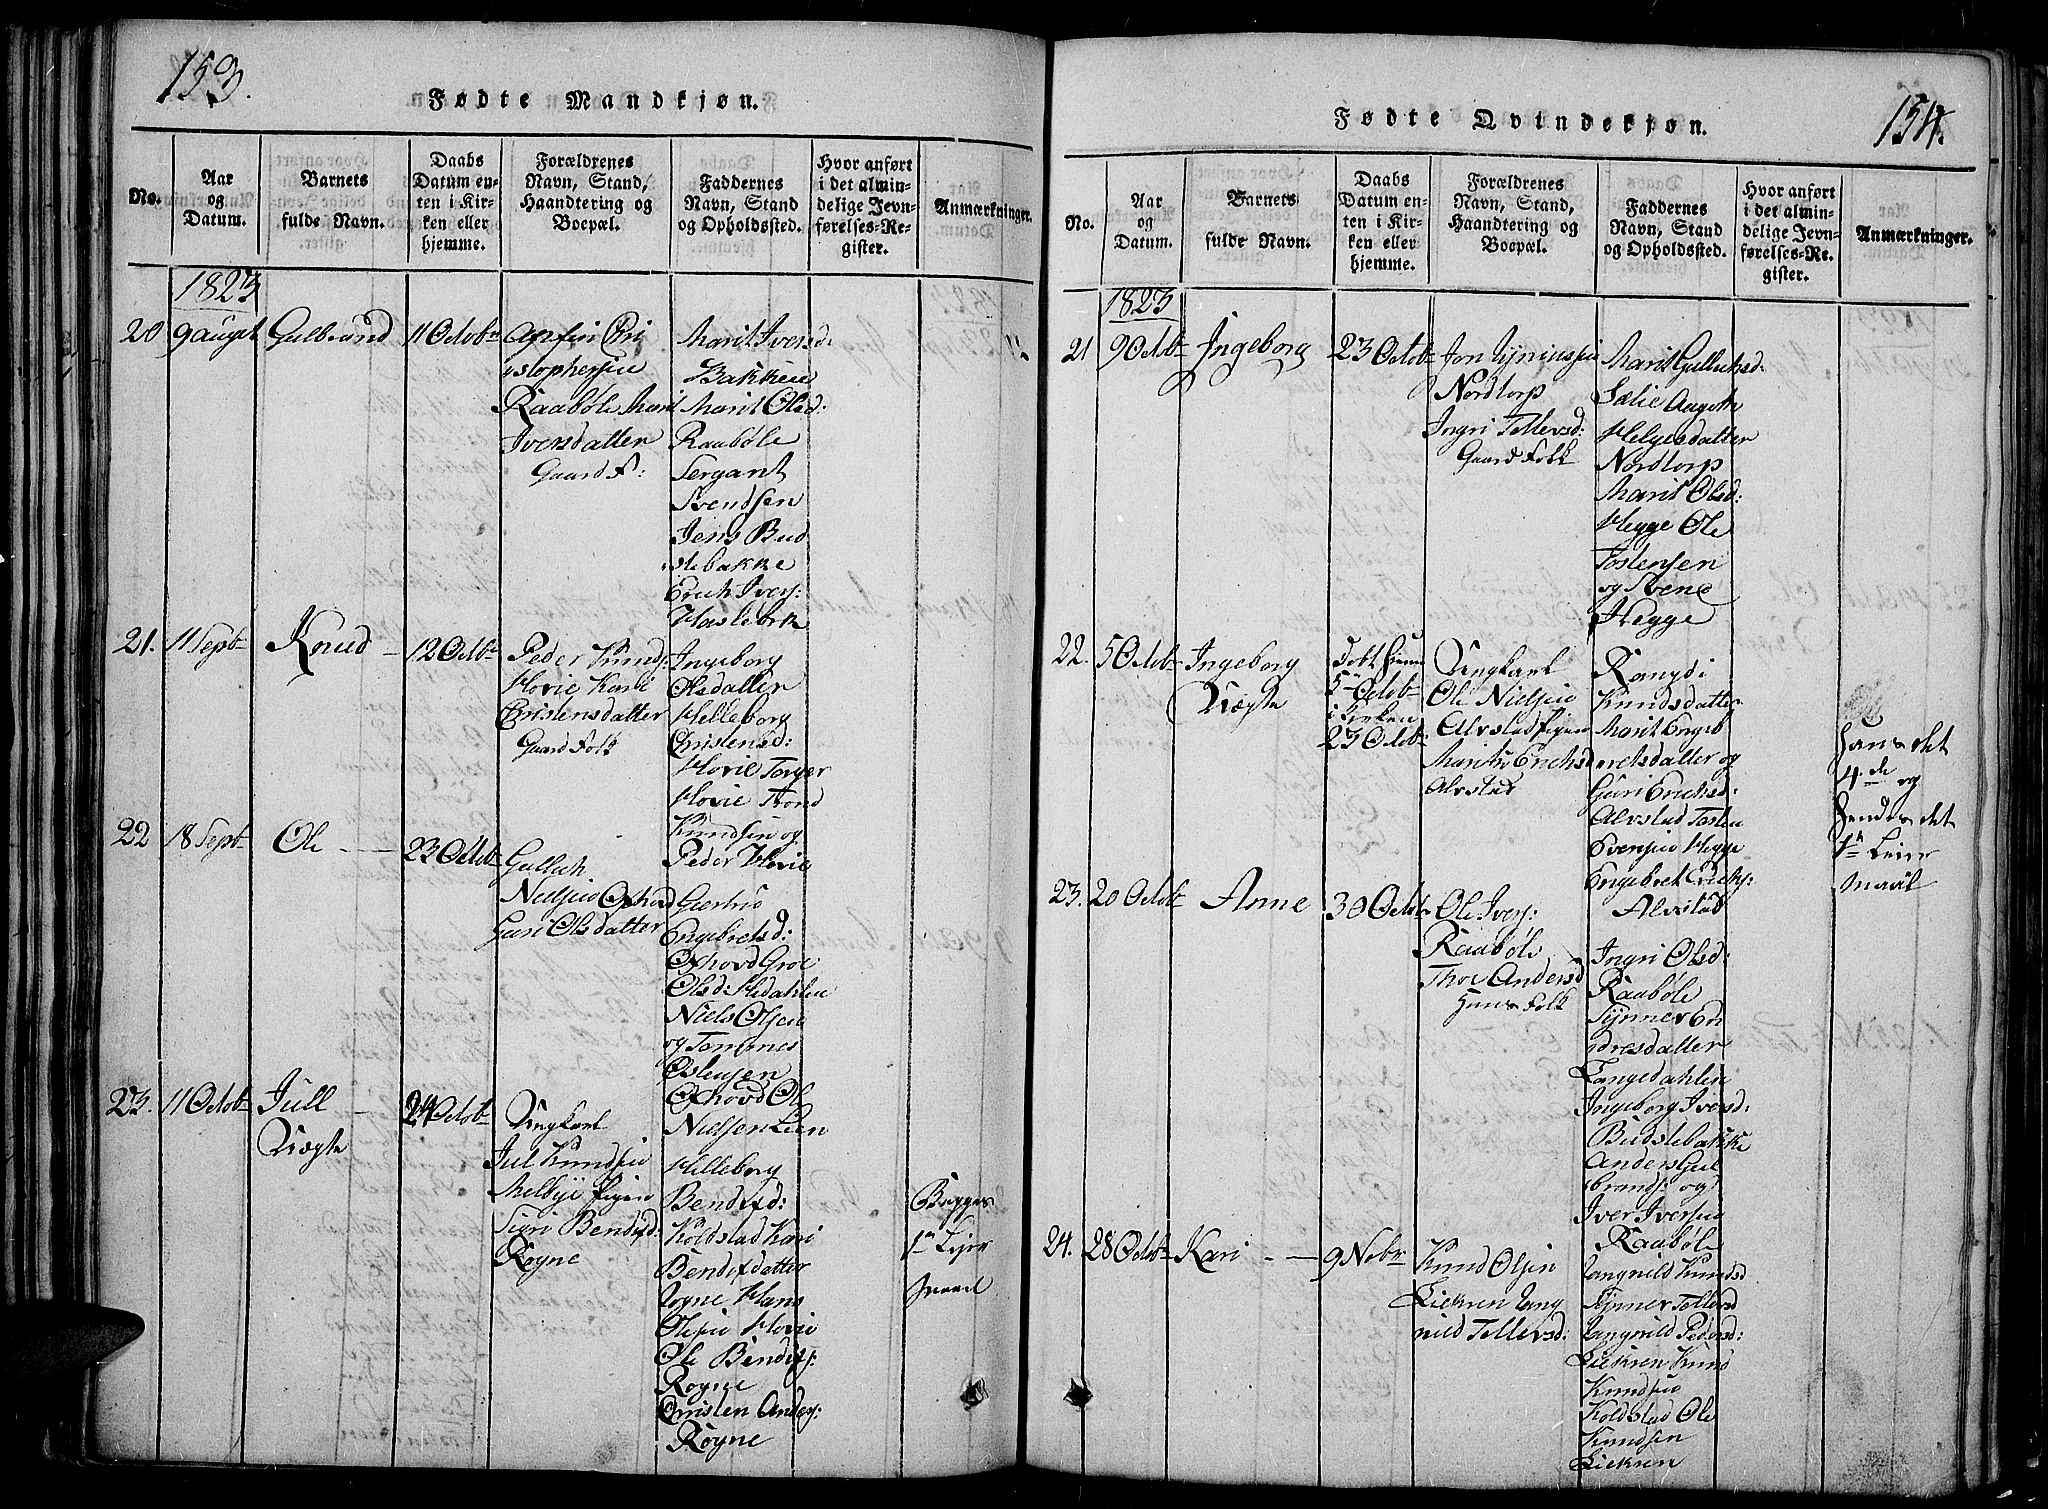 153.
Fødte Mandkjøn.
No.
Aar
og
Datum.
Barnets
fulde Navn.
Daabs
Datum en-
ten i Kir-
ken eller
hjemme.
Forældrenes
Navn, Stand,
Haandtering og
Boepæl.
Faddernes
Navn, Stand
og Opholdssted.
Hvor anført
i det almin-
delige Jevn-
førelses-Re-
gister.
Anmærkninger.
1823
20
9 August
Gulbrand
11 Octobr
Raabøle Marit
Iversdatter
Gaard F:
Marit Iversd:
Bakken
Marit Olsd:
Raabøle
Sergant
Svendsen
Jens Bud
slebakke
Erich Ivers:
21.
11 Septbr
Knud
12 Octbr
Peder Knuds:
Hovie Kari
Christensdatter
Gaard Folk
Ingeborg
Olsdatter
Helleborg
Christensd:
Hovie Torger
Hovie Trond
Knudsen og
Peder Hovie
22
18 Septbr
Ole
23 Octobr
Gullich
Nielsen Oxhovd
Guri Olsdatter
Giertrud
Engebretsd:
Oxhovd Groe
Olsd: Hedahlen
Niels Olsen
og Tommes
Ostensen
Oxhovd Ole
Nielsen Lien
23.
11 Octobr
Jull
Uægte
24 Octobr
Ungkarl
Jul Knudsen
Melbye Pigen
Sigri Bendixd:
Rogne
Helleborg
Bendixd:
Koldstad Kari
Bendixdatter
Rogne Hans
Olsen Hovie
Ole Bendixs:
Rogne
Christen Anders:
Rogne
Begges
1te Leier
maal
154.
Fødte Qvindekjøn.
No.
Aar
og
Datum.
Barnets
fulde Navn.
Daabs
Datum en-
ten i Kir-
ken eller
hjemme.
Forældrenes
Navn, Stand,
Haandtering og
Boepæl.
Faddernes
Navn, Stand
og Opholdssted.
Hvor anført
i det almin-
delige Jevn-
førelses-Re-
gister.
Anmærkninger.
1823
21
9 Octobr
Ingeborg
23 Octobr
Nordtorp
Ingri Tollevsd:
Gaard Folk
Marit Gullichsd:
Sælie Aagoth
Helgesdatter
Nordtorp
Marit Olsd:
Hegge Ole
Tostensen
og Svend
Hegge
22.
5 Octobr
Ingeborg
Uægte
Døbt hiemme
5te Octobr
i Kirken
23 Octobr
Ungkarl
Ole Nielsen
Alvstad Pigen
Marith Erichsd
Alvstad
Rangdi
Knudsdatter
Marit Engeb
retsdatter og
Guri Erichsd:
Alvstad Tosten
Svensen Hegge
Engebret Erichs:
Alvstad
Hans det
4.de og
Hendes det
1te Leier
maal
23.
20 Octobr
Anne
30 Octobr
Ole Ivers:
Raabøle
Thor Andersd
Huus Folk
Ingri Olsd:
Raabøle
Synnev En
dresdatter
Tangedahlen
Ingeborg Iversd:
Budslebakke
Anders Gul
brands: og
Iver Iversen
Raabøle
24.
28 Octobr
Kari
9 Nobr
Knud Olsen
Liekren Rang
nild Tollevsd:
Rangnild Knudsd
Synnev Tollevsd
Rangnild Pedersd:
Liekren Knud
Knudsen
Koldstad Ole
Knudsen
Liekren